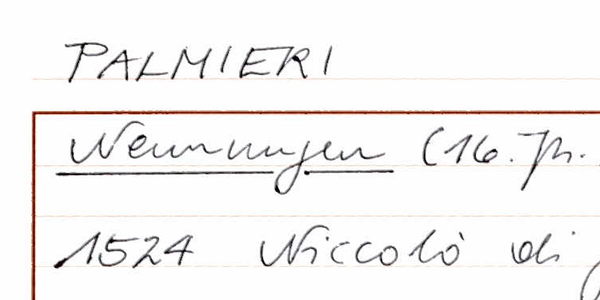 PALMIERI
Nennungen (16. Jh.
1524 Niccolò di